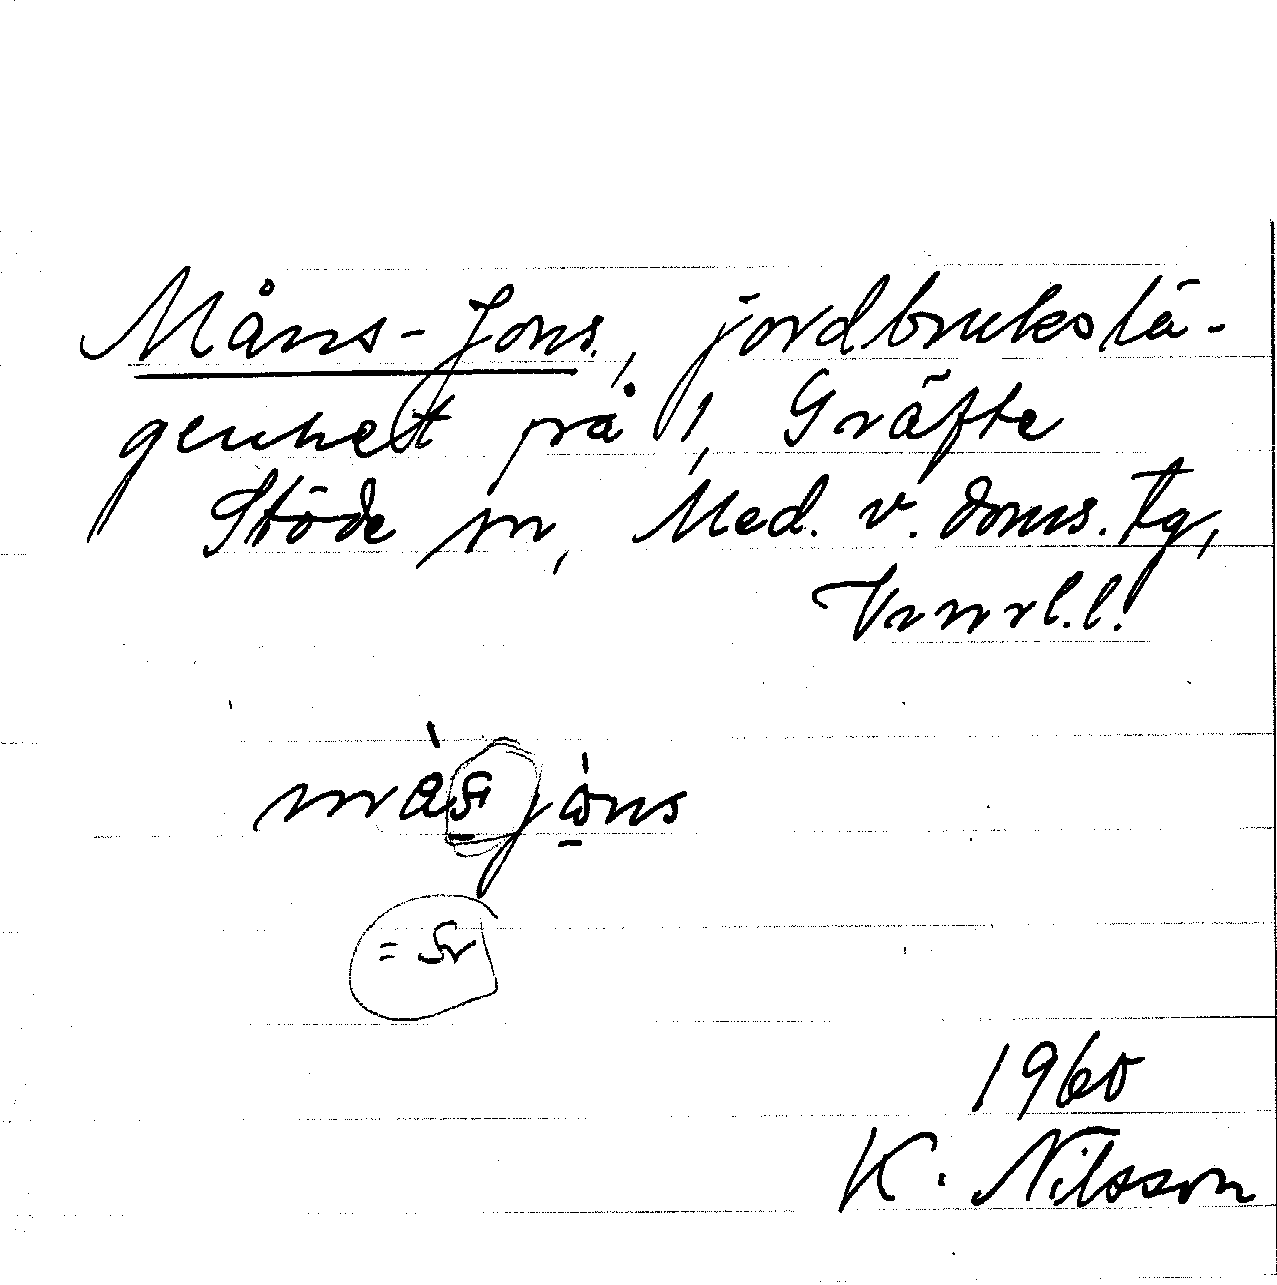 Måns-Jons, jordbrukslä-
genhet på 1, Gräfte
Stöde sn, Med. v. doms. tg,
Vnrrl.l.
jòns
1960
K. Nilsson